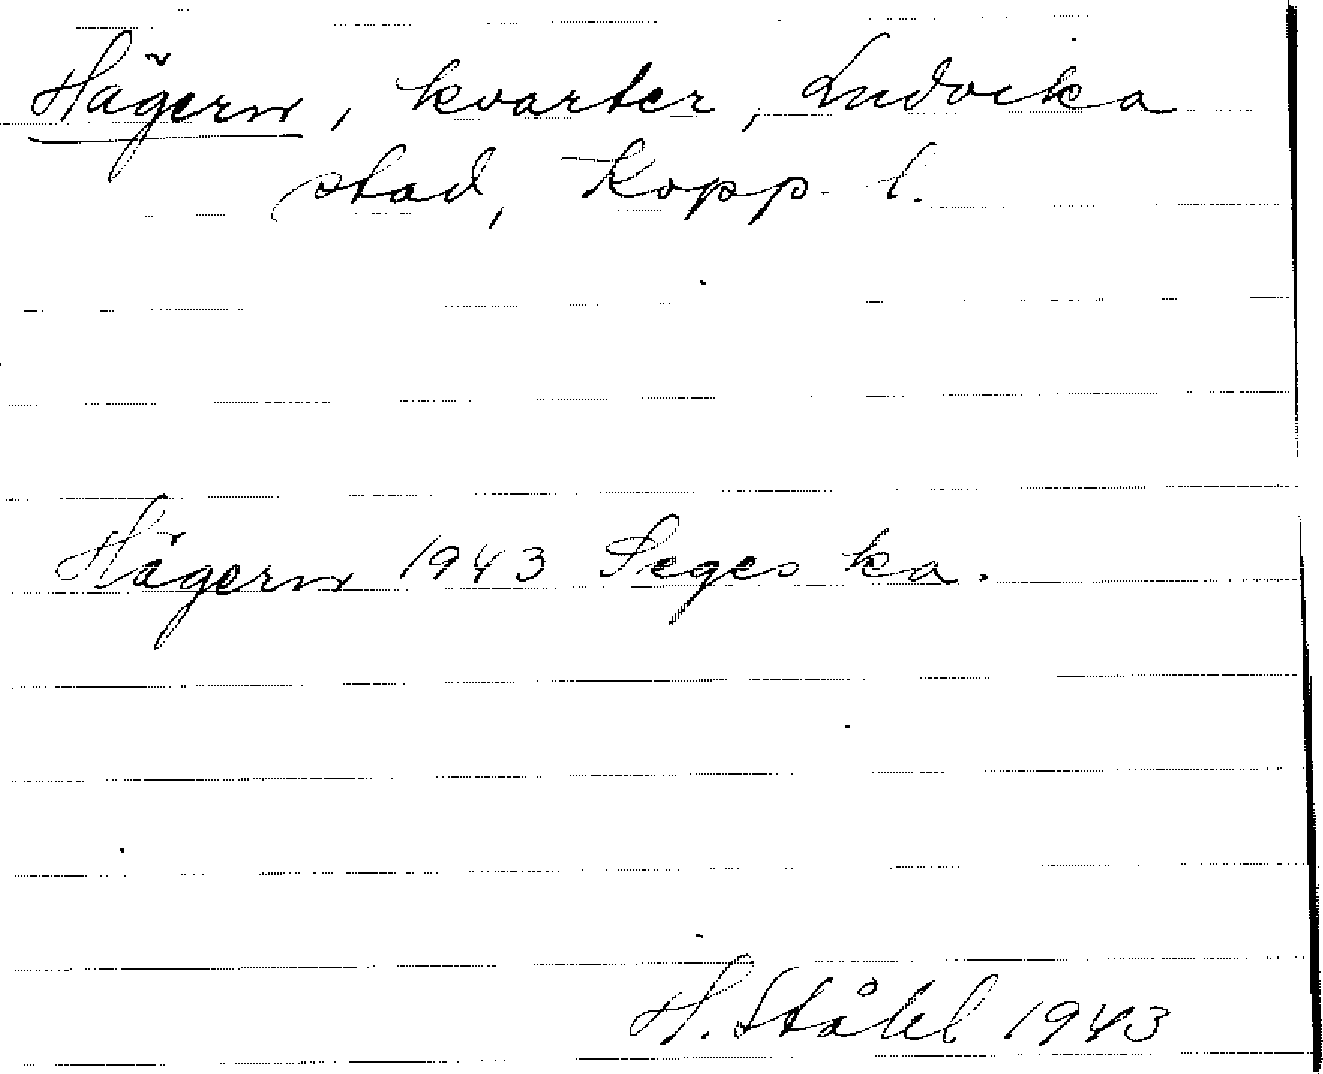 Hägern, kvarter, Ludvika
stad, Kopp. l.
Hägern 1943 Seges ka.
H. Ståhl 1943